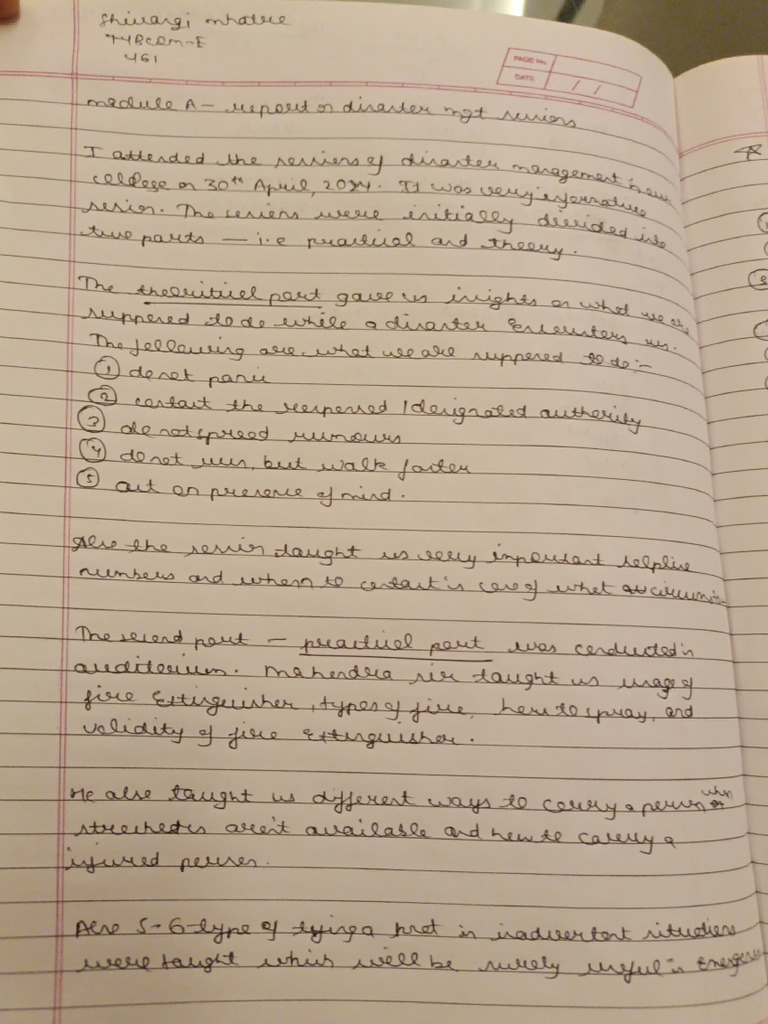 Shivangi mhatre
TYBCOM-E
461
PAGE No.
DATE / /
module A - report on disaster mgt sessions
I attended the sessions of disaster management in our
college on 30th April, 2024. It was very informative
session. The sessions were initially divided into
two parts — i.e practical and theory.
The theoritical part gave us insights on what we are
supposed to do while a disaster Encounters us.
The following are what we are supposed to do:-
① do not panic
② contact the responsed / designated authority
③ do not spread rumours
④ do not run, but walk faster
⑤ act on presence of mind.
Also the session taught us very important helpline
numbers and whom to contact in case of what
The second part - practical part was conducted in
auditorium. Mahendra sir taught us usage of
fire Extinguisher, types of fire, how to spray, and
validity of fire Extinguisher.
He also taught us different ways to carry a person when
strechers aren't available and how to carry a
injured person.
Also 5-6 type of tying a knot in inadvertent situations
were taught which will be surely useful in
*